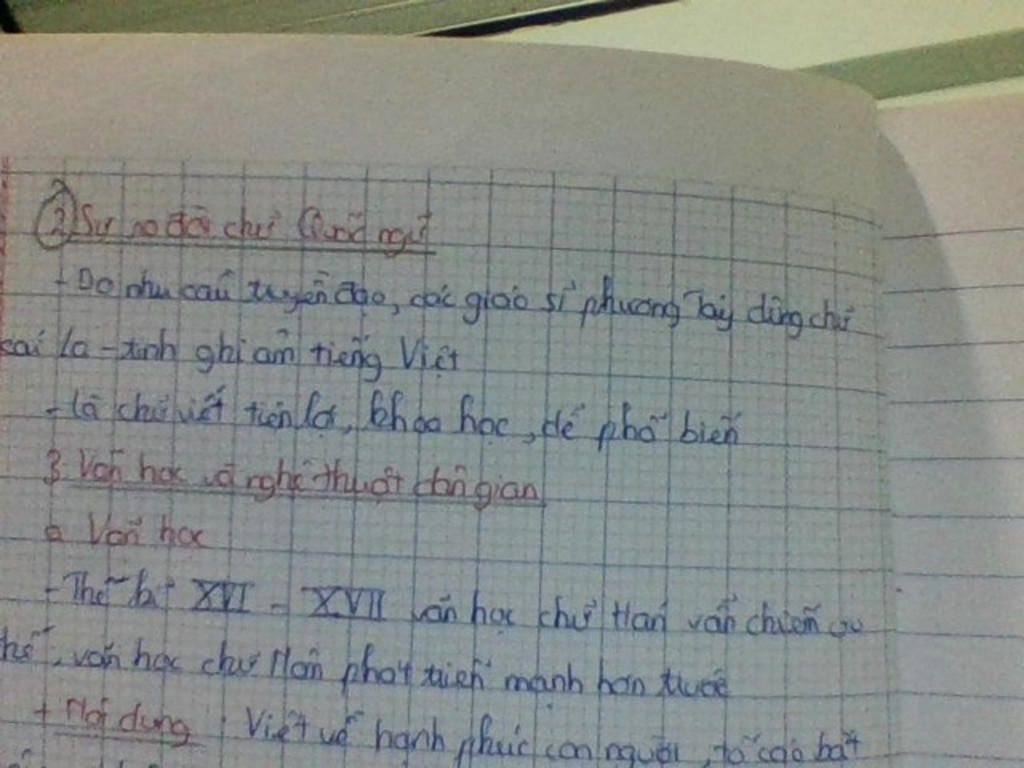 ② Sự ra đời chữ Quốc ngữ
- Do nhu cầu truyền đạo, các giáo sĩ phương Tây dùng chữ
cái La-tinh ghi âm tiếng Việt
- là chữ viết tiện lợi, khoa học, dễ phổ biến
3. Văn học và nghệ thuật dân gian
a. Văn học
- Thế kỉ XVI - XVII văn học chữ Hán vẫn chiếm ưu
thế, văn học chữ Nôm phát triển mạnh hơn trước
+ Nội dung: Viết về hạnh phúc con người, tố cáo bất